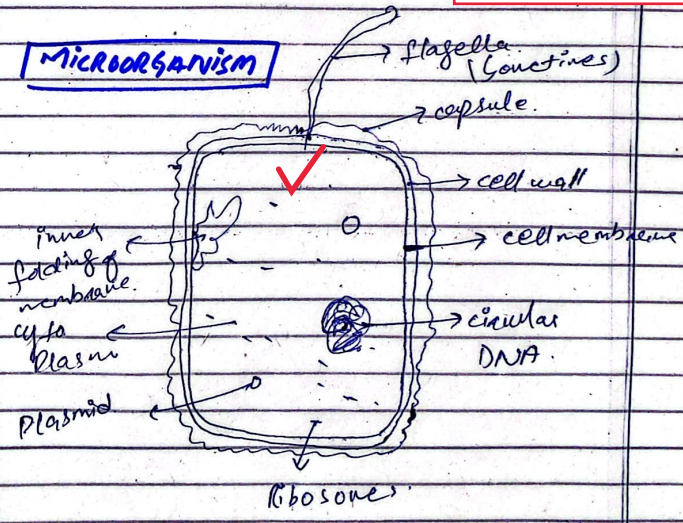 MICROORGANISM
flagella
(Sometimes)
capsule.
cell wall
cell membrane
inner
folding of
membrane.
cyto
plasm
circular
DNA.
Plasmid
Ribosomes.